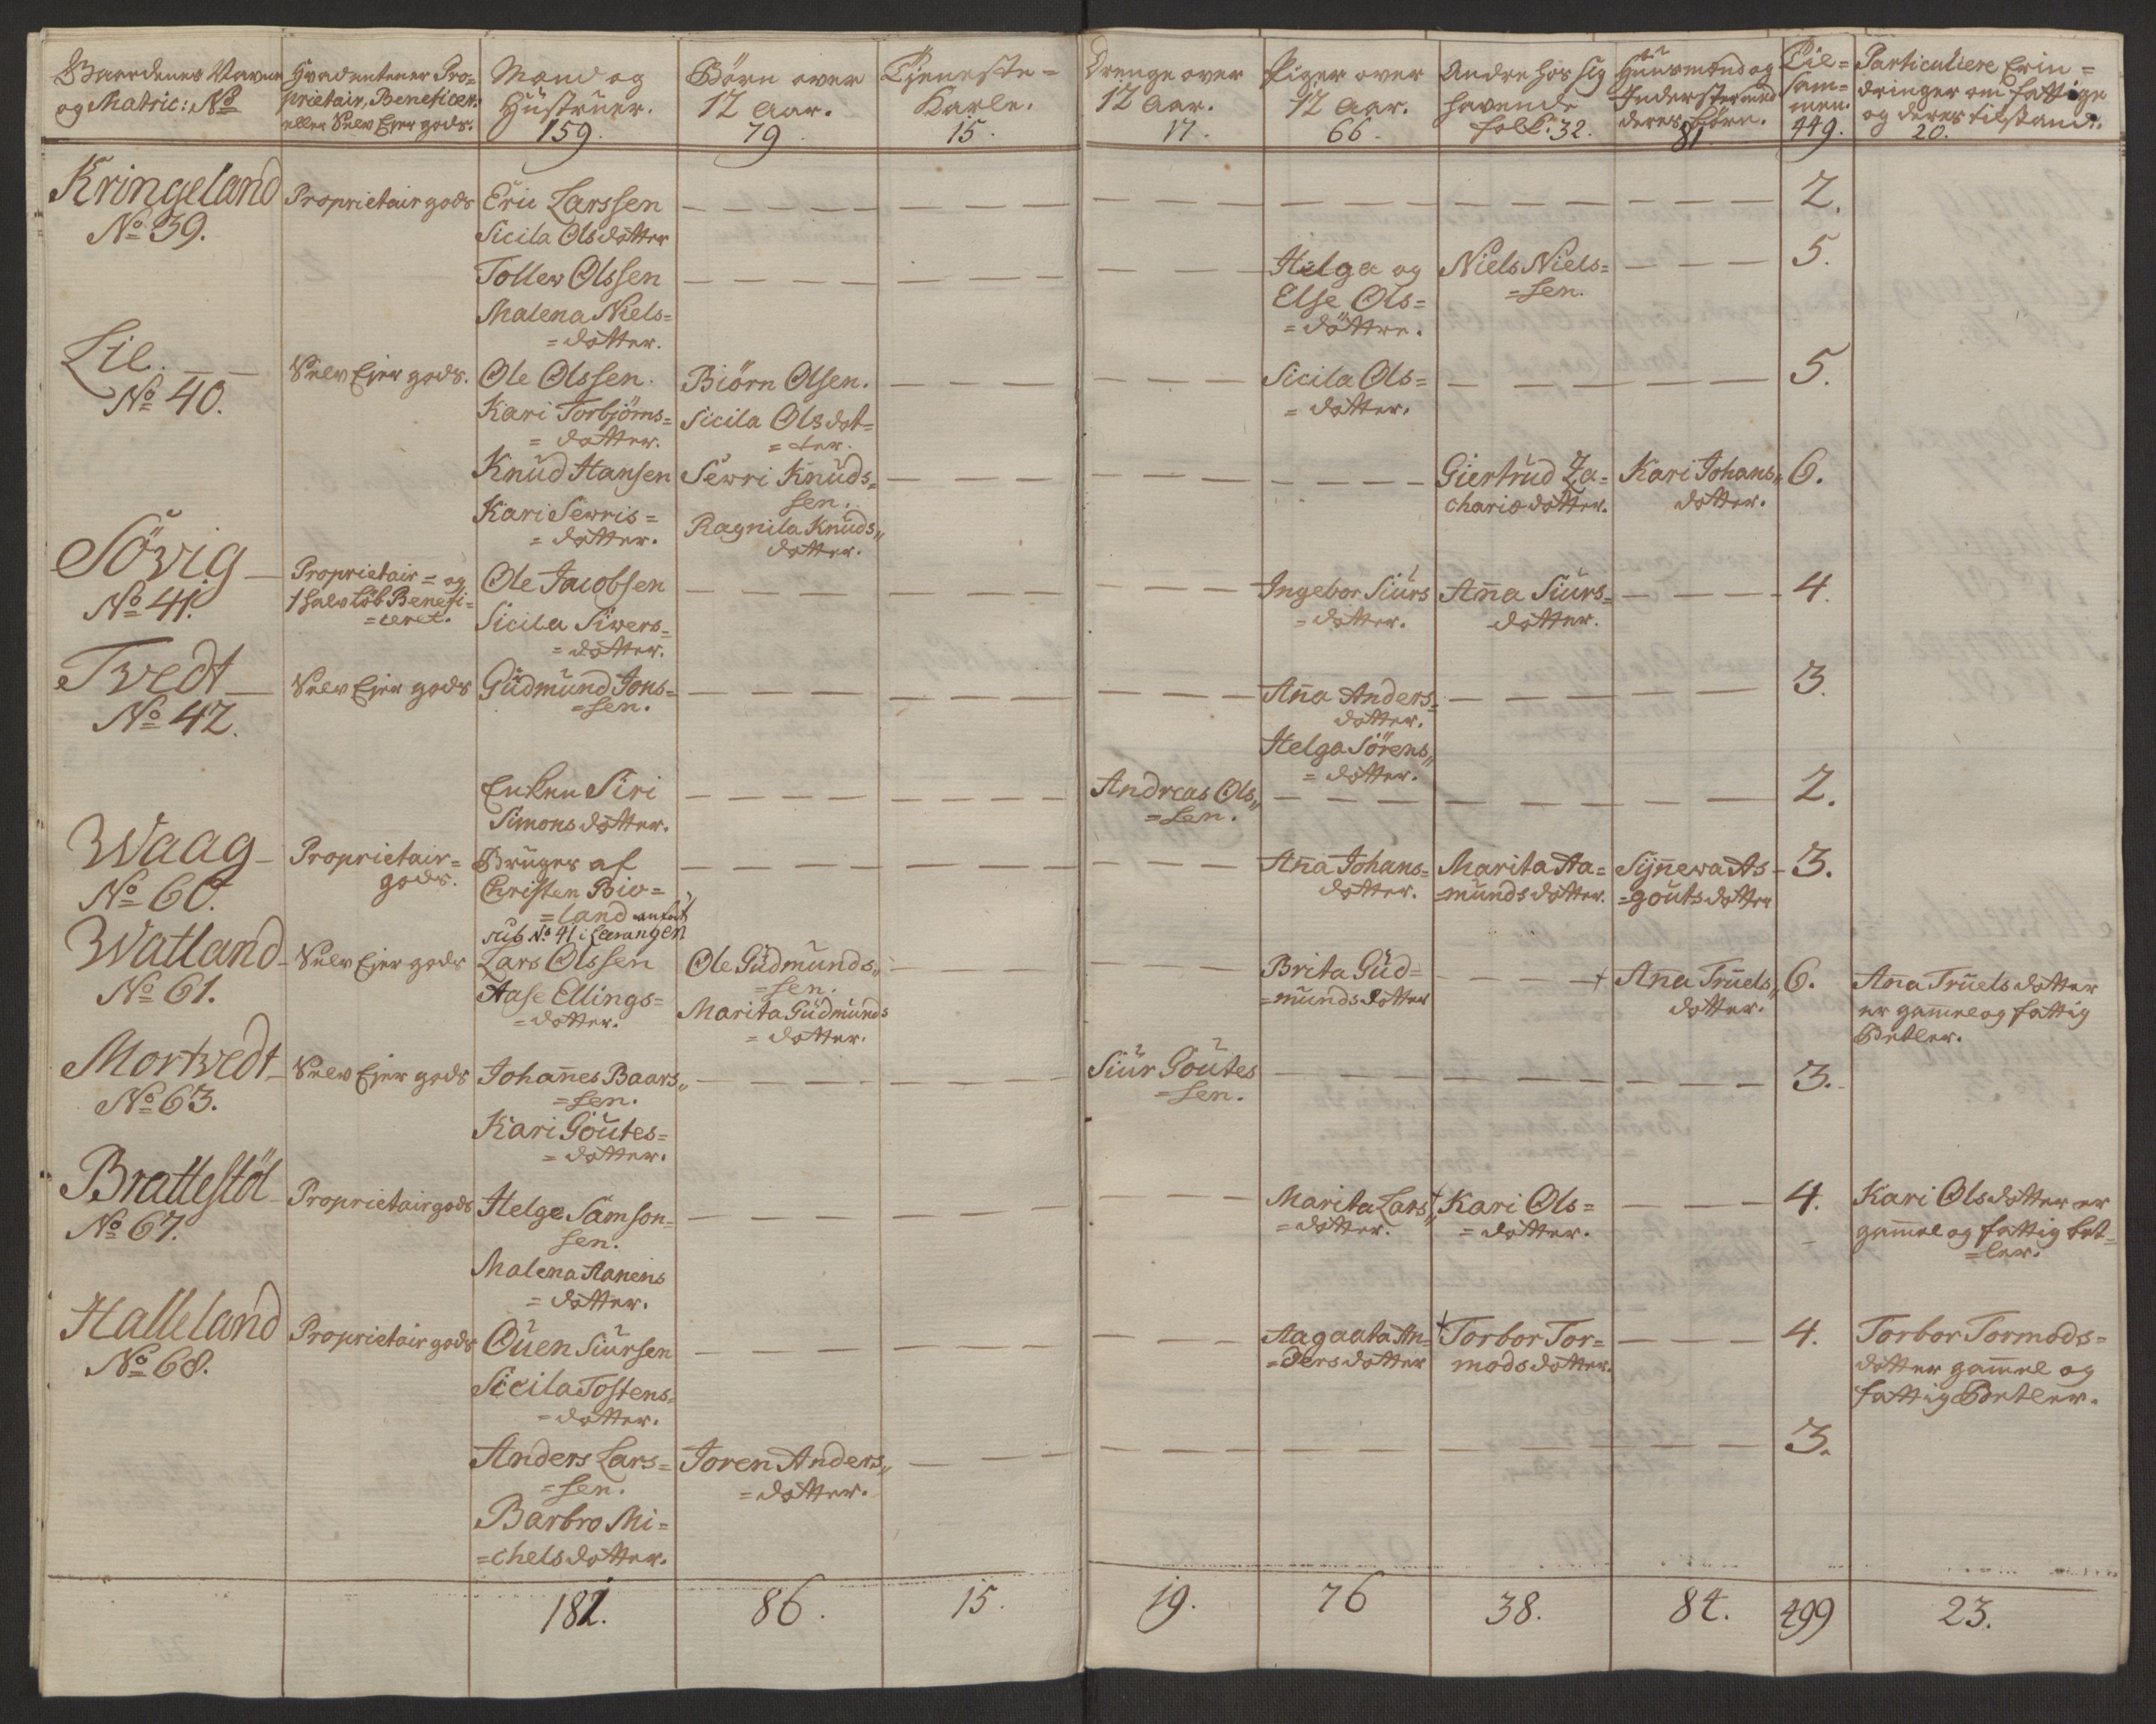 Gaardenes Navne
og Matric: No
Hvad entener Pro=
prietair, Beneficer:
eller Selv Ejer gods.
Mænd og
Hüstrüer.
159.
Börn over
12 Aar.
79.
Tjeneste=
Karle.
15.
Drenge over
12 Aar.
17.
Piger over
12 Aar.
66.
Andre hos sig
havende
folk: 32.
Huusmænd og
Inderster med
deres börn.
81.
Til=
sam=
men.
449.
Particuliere Erin=
dringer om fattige
og deres tilstand.
20.
Kringeland
No 39.
Proprietair gods
Eric Larssen
Sicila Olsdotter
2.
Tollew Olssen
Malena Niels=
=dotter.
Helga og
Else Ols=
=döttre.
Niels Niels=
=sen.
5.
Lie.
No 40.
Selv Ejer gods.
Ole Olssen.
Kari Torbjörns=
=dotter.
Biörn Olsen.
Sicila Olsdot=
=ter.
Sicila Ols=
=dotter.
5.
Knud Hansen
Kari Sewris=
=dotter.
Sewri Knuds=
sen.
Ragnila Knuds„
dotter.
Giertrud Za=
chariædotter.
Kari Johans„
dotter.
6.
Sövig
No 41.
Proprietair= og
1 halv löb Benefi=
=ceret.
Ole Jacobsen
Sicila Siwers=
=dotter.
Ingebor Siurs
=dotter.
Ana Siurs=
dotter.
4.
Tvedt
No 42.
Selv Ejer gods
Gudmund Jons=
=sen.
Ana Anders=
dotter.
Helga Sörens„
=dotter.
3.
Enken Siri
Simonsdotter.
Andreas Ols„
=sen.
2.
Waag
No 60.
Proprietair=
gods.
Brüges af
Christen Bio=
=land anført
sub No 41 i Levangen
Ana Johans=
dotter.
Marita Aa=
=mundsdotter.
Synewa As
=goutsdotter
3.
Watland
No 61.
Selv Ejer gods
Lars Olssen
Aase Ellings=
=dotter.
Ole Gudmunds„
=sen.
Marita Gudmunds
=dotter.
Brita Gud=
=mundsdotter
+ Ana Truels„
dotter.
6.
Ana Truelsdotter
er gamel og fattig
Betler.
Mortvedt
No 63.
Selv Ejer gods
Johanes Baars„
=sen.
Kari Goutes=
=dotter.
Siur Goutes
=sen.
3.
Brattestöl
No 67.
Proprietair gods
Helge Samson=
sen.
Malena Aanens
=dotter.
Marita Lars„
=dotter.
+ Kari Ols=
=dotter.
4.
Kari Olsdotter er
gamel og fattig bet=
=ler.
Halleland
No 68.
Proprietair gods
Ouen Siursen
Sicila Tostens=
=dotter.
Aagaata An=
=dersdotter
+ Torbor Tor=
modsdotter.
4.
Torbor Tormods=
dotter gamel og
fattig Betler.
Anders Lars=
=sen.
Barbro Mi=
=chelsdotter.
Joren Anders„
=dotter.
3.
181.
86.
15.
19.
76
38.
84.
499
23.